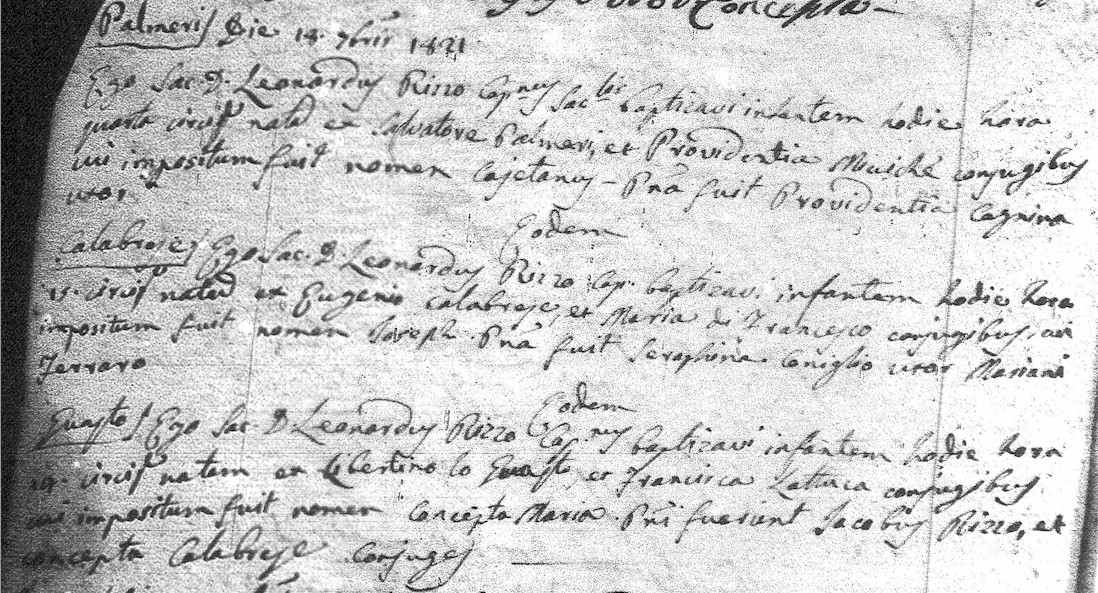 Concepta –
Palmeris Die 18. 7bris 1821
Ego Sac. D. Leonardus Rizzo Cap.nus Sac.lis baptizavi infantem hodie hora
quarta circis natus ex Salvatore Palmeri, et Providentia Muschè conjugibus
cui impositum fuit nomen Cajetanus – Pna fuit Providentia Cagnina
uxor
Eodem
Calabrese Ego Sac. D. Leonardus Rizzo Cap. baptizavi infantem hodie hora
15. circis natus ex Eugenio Calabrese, et Maria di Francesco conjugibus, cui
impositum fuit nomen Joseph. Pna fuit Seraphina Coniglio uxor Mariani
Ferraro
Eodem
Guasto Ego Sac. D. Leonardus Rizzo Cap.nus baptizavi infantem hodie hora
19. circis natam ex Libertino lo Guasto, et Francisca Lattuca conjugibus
cui impositum fuit nomen Concepta Maria. Pni fuerunt Jacobus Rizzo, et
Concepta Calabrese conjuges